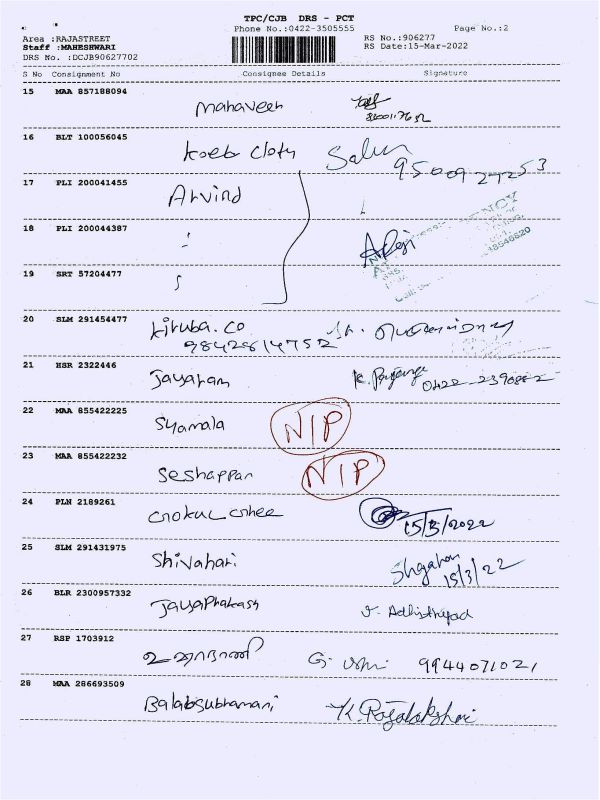 TPC/CJB DRS - PCT
Phone No.:0422-3505555
Page No.:2
Area :RAJASTREET
Staff :MAHESHWARI
DRS No. :DCJB90627702
RS No.:906277
RS Date:15-Mar-2022
S No Consignment No Consignee Details Signature
15 MAA 857188094
Mahaveer
16 BLT 100056045
Koeb Cloth
9500927253
17 PLI 200041455
Arvind
18 PLI 200044387
19 SRT 57204477
20 SLM 291454477
Kiruba.co
9842814752
21 HSR 2322446
Jayaram
0422 2390882
22 MAA 855422225
Syamala NIP
23 MAA 855422232
Seshappan NIP
24 PLN 2189261
Gokul Ghee 15/3/2022
25 SLM 291431975
Shivahari
15/3/22
26 BLR 2300957332
JayaPrakash
27 RSP 1703912
G. 9944071021
28 MAA 286693509
Balabsubramani K. Rajalakshmi